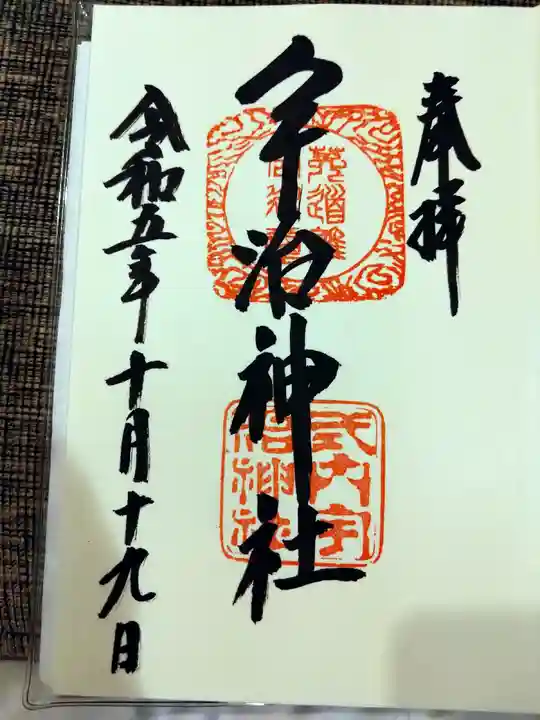 奉拝
宇治神社
式内宇
治神社
令和五年十月十九日